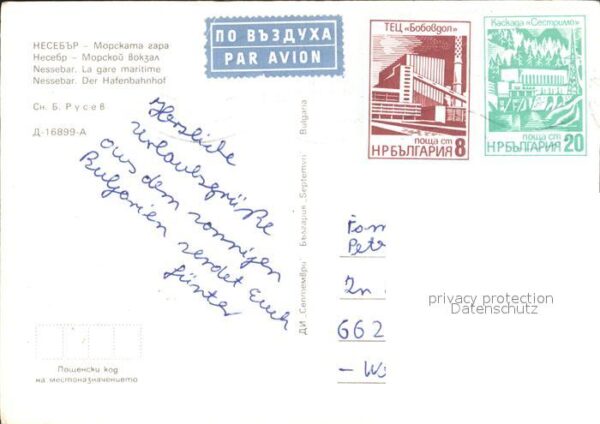 НЕСЕБЪР – Морската гара
Несебр – Морской вокзал
Nessebar. La gare maritime
Nessebar. Der Hafenbahnhof
Сн. Б. Русев
Д-16899-А
ПО ВЪЗДУХА
PAR AVION
ТЕЦ „Бобовдол"
поща ст
НРБЪЛГАРИЯ 8
Каскада „Сестримо"
поща ст
НРБЪЛГАРИЯ 20
Herzliche
Urlaubsgrüße
aus dem sonnigen
Bulgarien sendet Euch
Günter
ДИ „Септември" България „Septemvri" Bulgaria
Fam
Petr
In
662
– W
privacy protection
Datenschutz
Пощенски код
на местоназначението